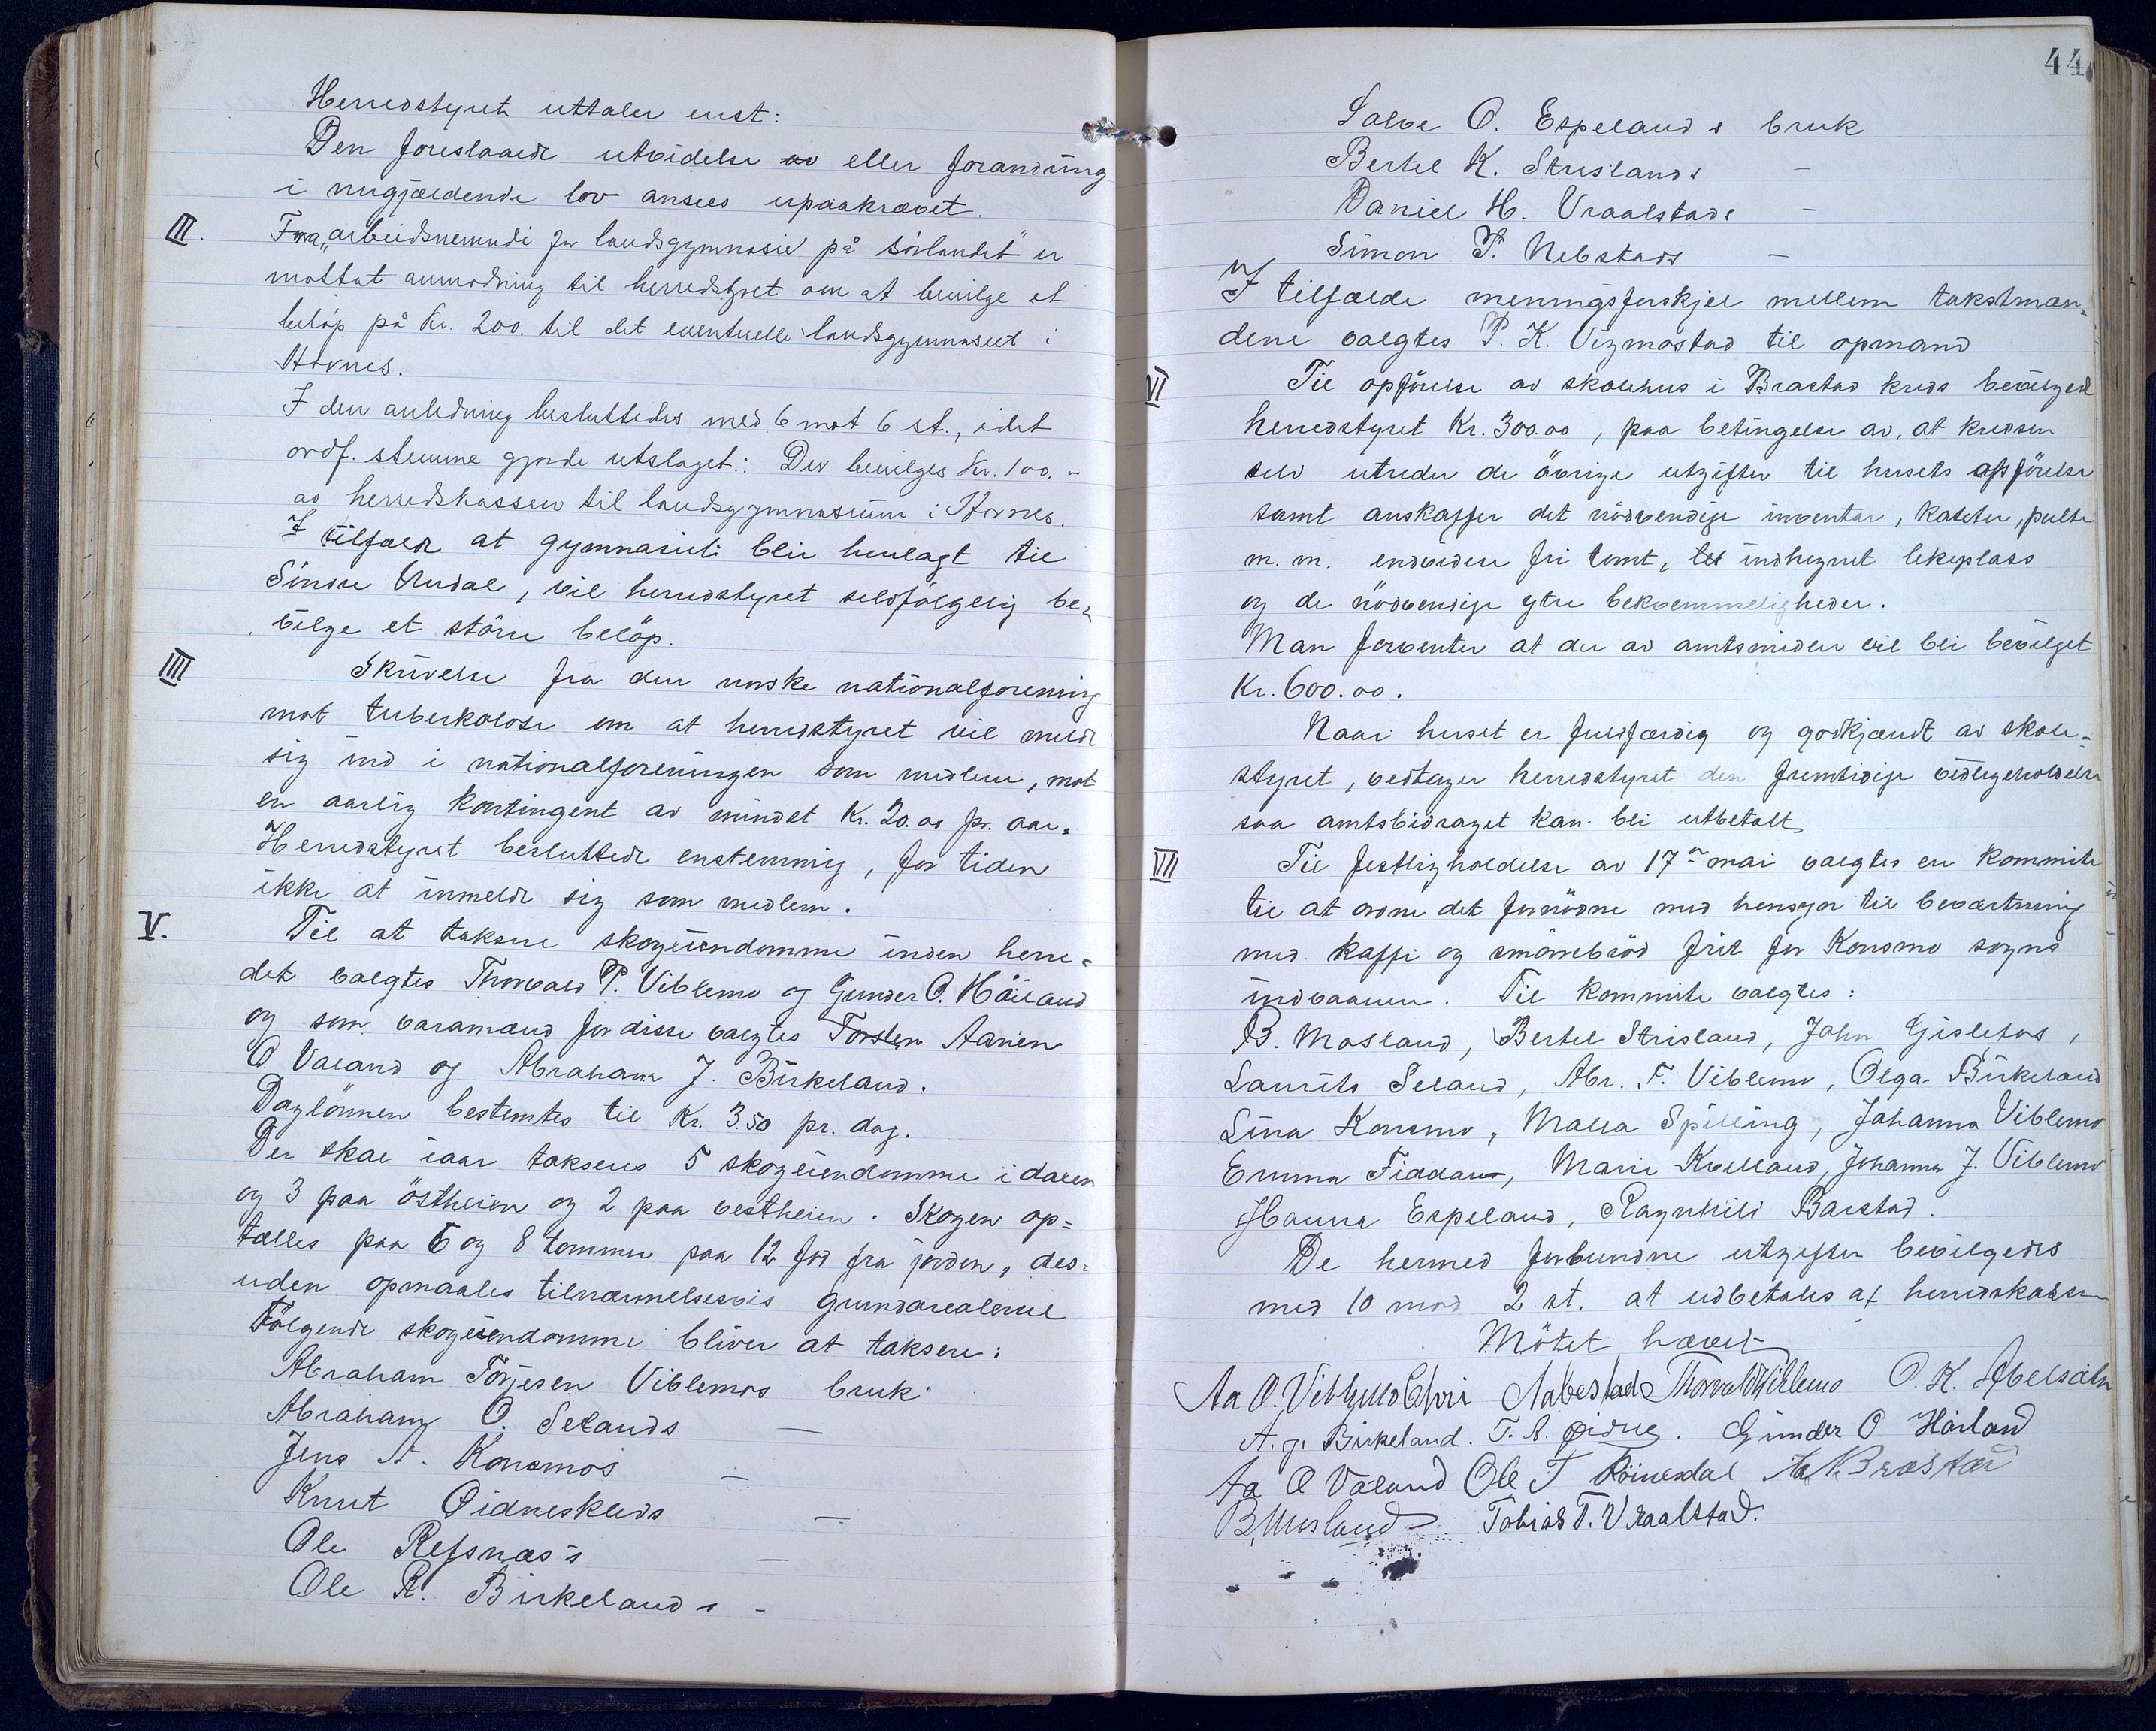 Herredstyret uttaler enst:
Den foreslaaede utvidelse av eller forandring
i nugjældende lov ansees upaakrævet.
III. Fra „arbeidsnemndi for landsgymnasie på Sörlandet" er
mottat anmodning til herredstyret om at bevilge et
belöp på Kr. 200. til det eventuelle landsgymnaseet i
Hornes.
I den anledning besluttedes med 6 mot 6 st., idet
ordf. stemme gjorde utslaget: Der bevilges Kr. 100.-
av herredskassen til landsgymnasium i Hornes.
I tilfælde at gymnasiet blir henlagt til
Söndre Undal, vil herredstyret selvfölgelig be-
vilge et större belöp.
IIII Skrivelse fra den norske nationalforening
mot tuberkolose om at herredstyret vil melde
sig ind i nationalforeningen som medlem, mot
en aarlig kontingent av mindst Kr. 20.00 pr. aar.
Herredstyret besluttede enstemmig, for tiden
ikke at inmelde sig som medlem.
V. Til at taksere skogeiendomme inden herre-
det valgtes Thorvald P. Viblemo og Gunder O. Höiland
og som varamænd for disse valgtes Torsten Aanen
O. Valand og Abraham J. Birkeland.
Daglönnen bestemtes til Kr. 3.50 pr. dag.
Der skal iaar takseres 5 skogeiendomme i dalen
og 3 paa östheien og 2 paa vestheien. Skogen op=
tælles paa 6 og 8 tommer paa 12 fod fra jorden, des=
uden opmaales tilnærmelsesvis grundarealerne
Fölgende skogeiendomme bliver at taksere:
Abraham Torjesen Viblemos bruk
Abraham O. Selands —
Jens A. Konsmos —
Knut Öidneskleivs —
Ole Refsnæs's —
Ole R. Birkelands -
44
Salve O. Espelands bruk
Bertel K. Strislands —
Daniel H. Vraalstads —
Simon T. Nebstads —
I tilfælde meningsforskjel mellem takstmæn=
dene valgtes P. K. Vigmostad til opmand
VI Til opförelse av skolehus i Brastad kreds bevilgede
herredstyret Kr. 300.00, paa betingelse av, at kredsen
selv utreder de övrige utgifter til husets opförelse
samt anskaffer det nödvendige inventar, kateter, pulte
m. m. endvidere fri tomt, til indhegnet lekeplass
og de nödvendige ytre bekvemmeligheder.
Man forventer at der av amtsmidler vil bli bevilget
Kr. 600.00.
Naar huset er fuldfærdig og godkjendt av skole=
styret, vedtager herredstyret den fremtidige vedligeholdelse
saa amtsbidraget kan bli utbetalt
VII Til festligholdelse av 17de mai valgtes en kommite
til at ordne det fornödne med hensyn til bevertning
med kaffi og smörrebröd frit for Konsmo sogns
indvaanere. Til kommite valgtes:
B. Mosland, Bertel Strisland, John Gislefos,
Laurits Seland, Abr. T. Viblemo, Olga Birkeland
Lina Konsmo, Malla Spilling, Johanna Viblemo
Emma Fiddan, Marie Kvelland, Johanna J. Viblemo
Hanna Espeland, Ragnhild Barstad.
De hermed forbundne utgifter bevilgedes
med 10 mod 2 st. at udbetales af herredskassen
Mötet hævet
Aa O. Viblemo Chri Aabestad Thorvald Viblemo O. K. Abelsæth
A. J. Birkeland. T. A. Öidne. Gunder O Höiland
Aa O Valand Ole T Röinesdal Aa N Brastad
B. Mosland Tobias T. Vraalstad.